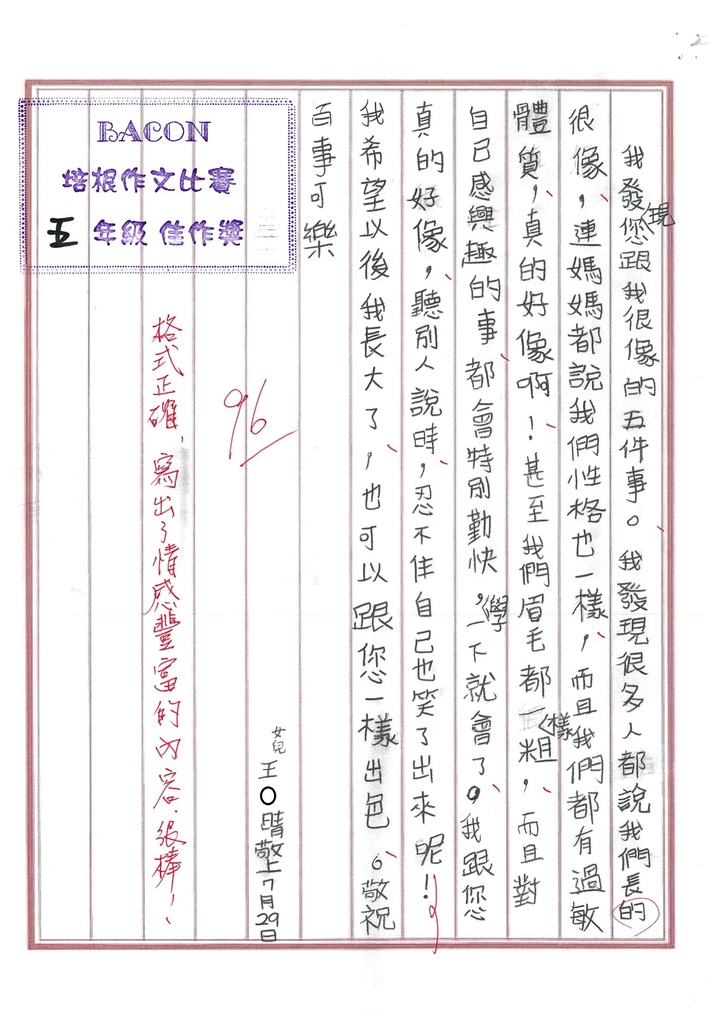 我發現您跟我很像的五件事。我發現很多人都說我們長的
很像，連媽媽都說我們性格也一樣，而且我們都有過敏
體質，真的好像啊！甚至我們眉毛都一樣粗，而且對
自己感興趣的事都會特別勤快，學一下就會了，我跟您
真的好像，聽別人說時，忍不住自己也笑了出來呢！
我希望以後我長大了，也可以跟您一樣出色。敬祝
百事可樂
女兒王○晴敬上7月29日
96
格式正確，寫出了情感豐富的內容，很棒！
BACON
培根作文比賽
五年級 佳作獎